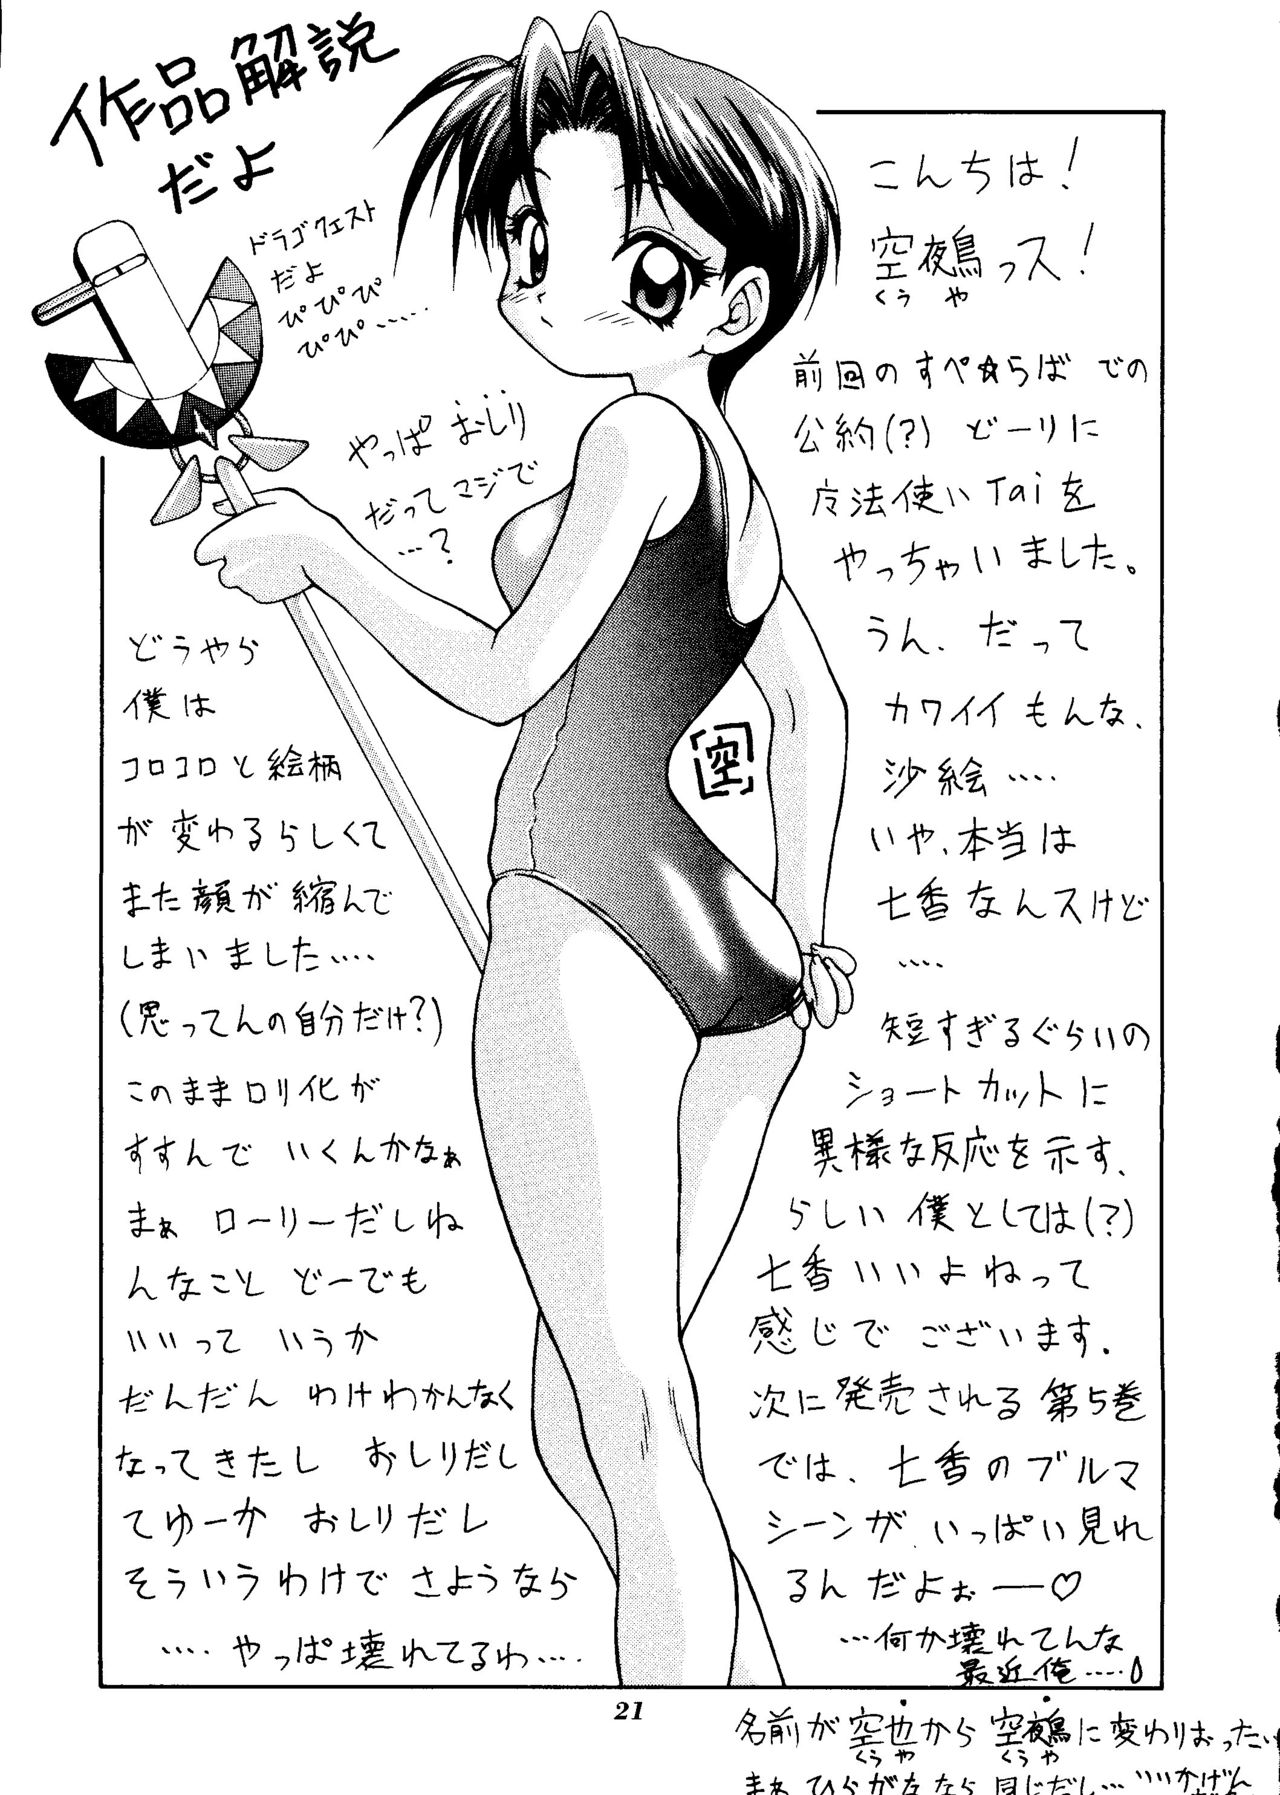 作品解説
だよ
ドラゴクエスト
だよ
ぴぴぴ
ぴぴ……
やっぱ おしり
だってマジで
…?
こんちは!
空夜鳥っス!
くう や
前回のすぺ☆らば での
公約(?) どーりに
法使いTaiを
やっちゃいました。
うん、だって
カワイイもんな、
沙絵….
いや、本当は
七香なんスけど
….
短すぎるぐらいの
ショートカットに
異様な反応を示す、
らしい僕としては(?)
七香いいよねって
感じでございます.
次に発売される第5巻
では、七香のブルマ
シーンが いっぱい見れ
るんだよぉー♡
…何か壊れてんな
最近俺….
空
どうやら
僕は
コロコロと絵柄
が変わるらしくて
また顔が縮んで
しまいました….
(思ってんの自分だけ?)
このままロリ化が
すすんで いくんかなぁ
まぁ ローリーだしね
んなこと どーでも
いいって いうか
だんだん わけわかんなく
なってきたし おしりだし
てゆーか おしりだし
そういうわけで さようなら
….やっぱ壊れてるわ….
21
名前が空也から空夜鳥に変わりおったい
くう や くう や
まぁひらがななら同じだし…いいかげん